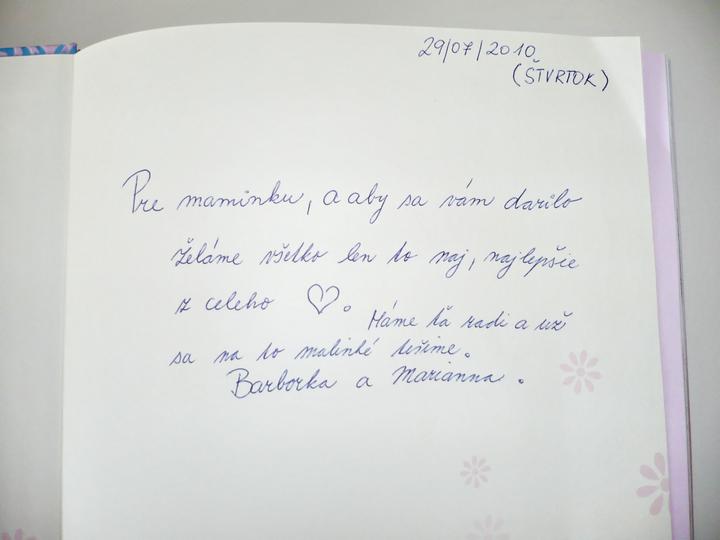 29/07/2010
(ŠTVRTOK)
Pre maminku, a aby sa vám darilo
želáme všetko len to naj, najlepšie
z celeho ♡.
Máme ťa radi a už
sa na to malinké tešíme.
Barborka a Marianna.